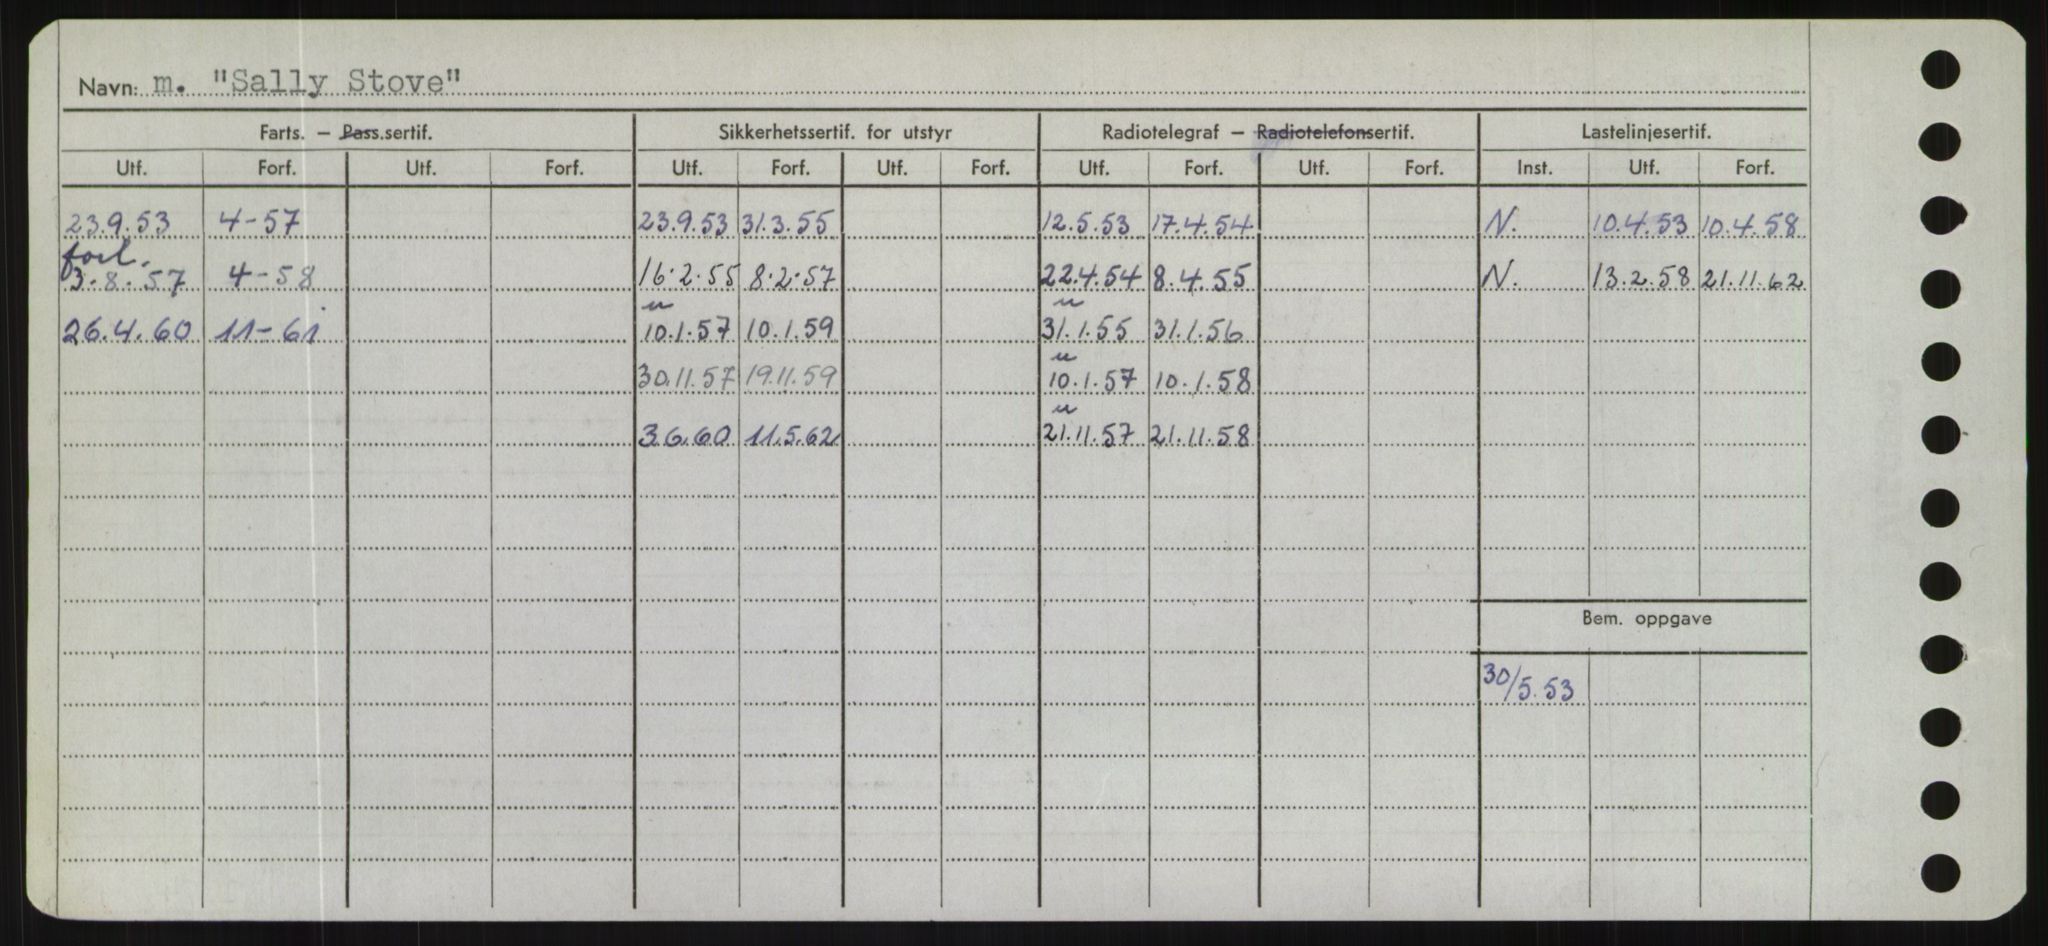 Navn: m. "Sally Stove"
Farts. – Pass.sertif. Sikkerhetssertif. for utstyr Radiotelegraf – Radiotelefonsertif. Lastelinjesertif.
Utf. Forf. Utf. Forf. Utf. Forf. Utf. Forf. Utf. Forf. Utf. Forf. Inst. Utf. Forf.
23.9.53 4-57 23.9.53 31.3.55 12.5.53 17.4.54 N. 10.4.53 10.4.58
forl.
3.8.57 4-58 16.2.55 8.2.57 22.4.54 8.4.55 N. 13.2.58 21.11.62
u u
26.4.60 11-61 10.1.57 10.1.59 31.1.55 31.1.56
u
30.11.57 19.11.59 10.1.57 10.1.58
u
3.6.60 11.5.62 21.11.57 21.11.58
Bem. oppgave
30/5.53